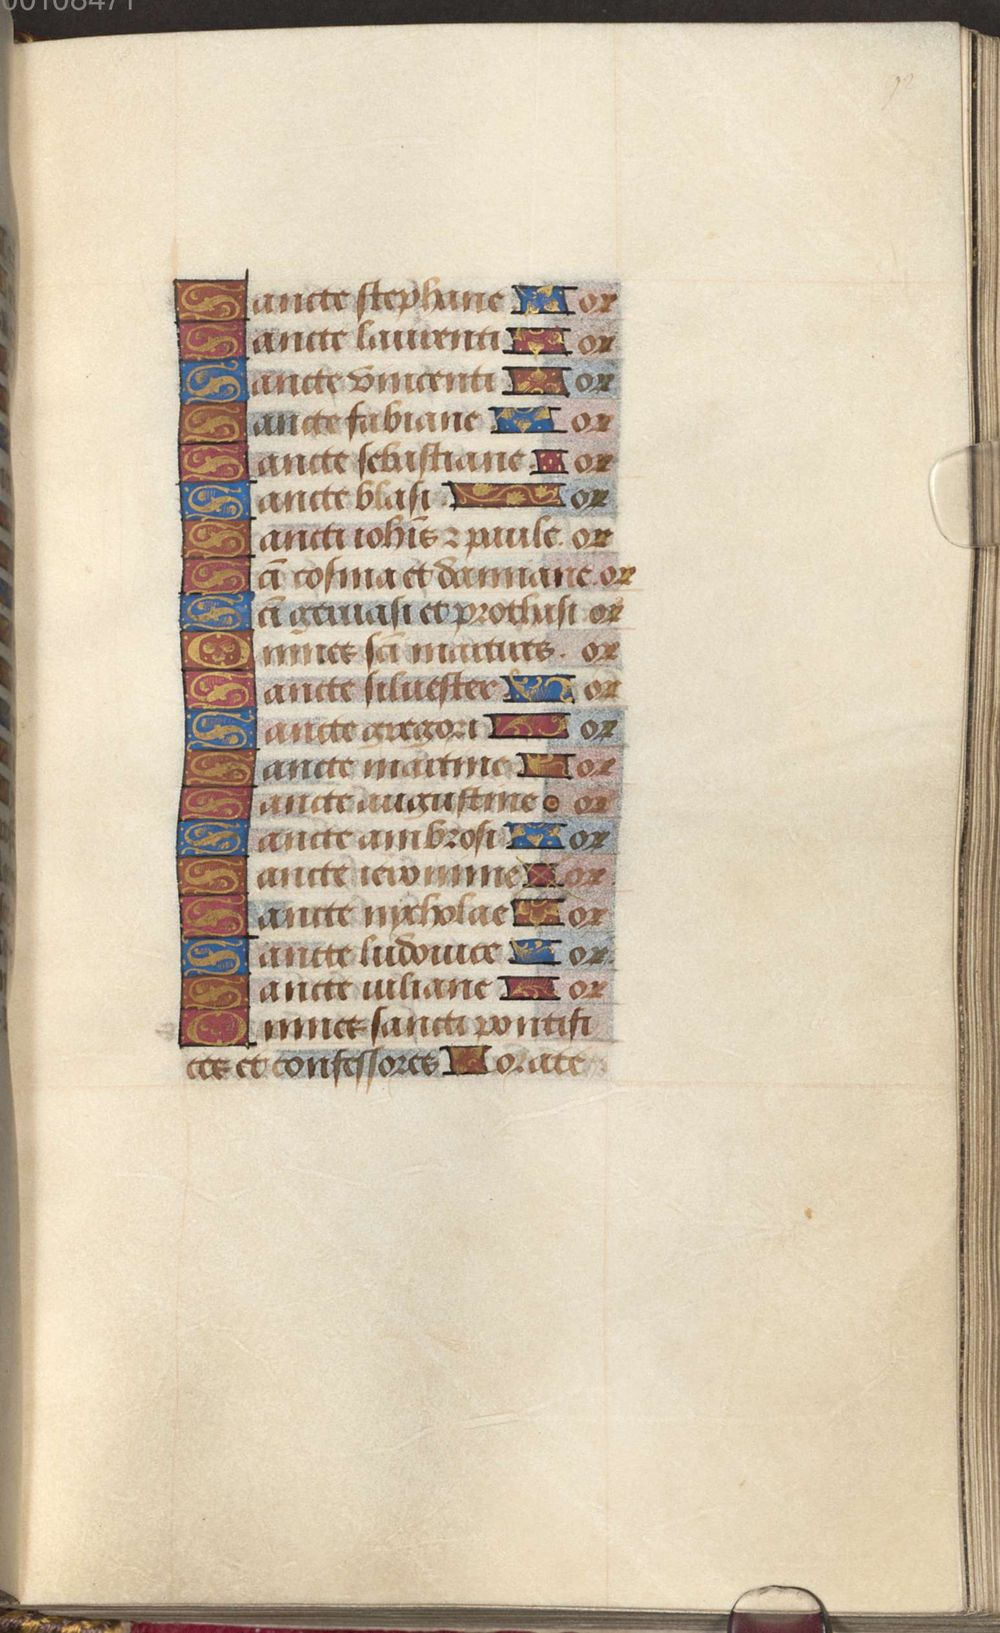 00108471
92
Sancte stephane or
Sancte laurenti or
Sancte vincenti or
Sancte fabiane or
Sancte sebastiane or
Sancte blasi or
Sancti iohīs ⁊ paule. or
Scī cosma et damiane. or
Scī geruasi et prothasi or
Omnes scī martires. or
Sancte siluester or
Sancte gregori or
Sancte martine or
Sancte augustine or
Sancte ambrosi or
Sancte ieronime or
Sancte nycholae or
Sancte ludouice or
Sancte iuliane or
Omnes sancti pontifi
ces et confessores orate